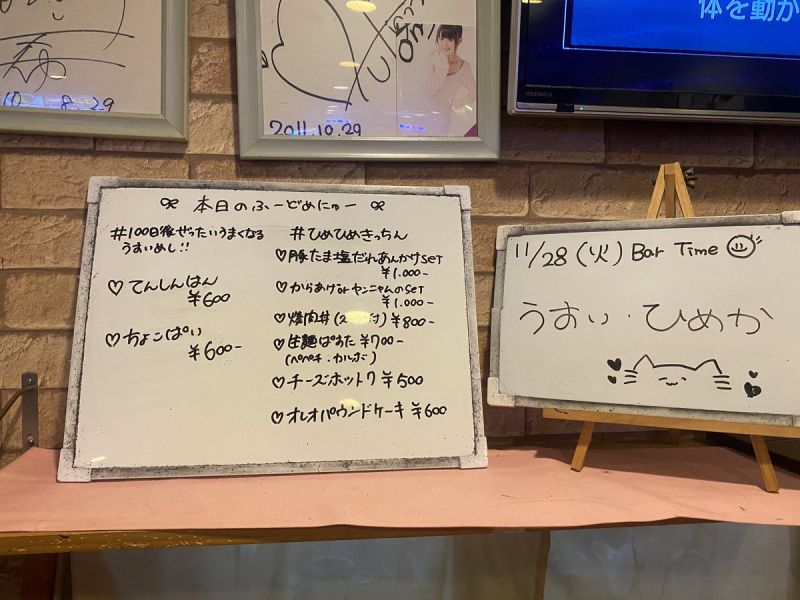 10. 8.29
2011.10.29
体を動か
本日のふーどめにゅー
#100日後ぜったいうまくなる
うすいめし!!
♡てんしんはん
¥600
♡ちょこぱい
¥600-
#ひめひめきっちん
♡豚たま塩だれあんかけSET
¥1.000-
♡からあげorヤンニャムのSET
¥1.000-
♡焼肉丼(スープ付)¥800-
♡生麺ぱすた ¥700-
(ペペチ・カルボ)
♡チーズホットク ¥500
♡オレオパウンドケーキ ¥600
11/28(火) Bar Time
うすい・ひめか